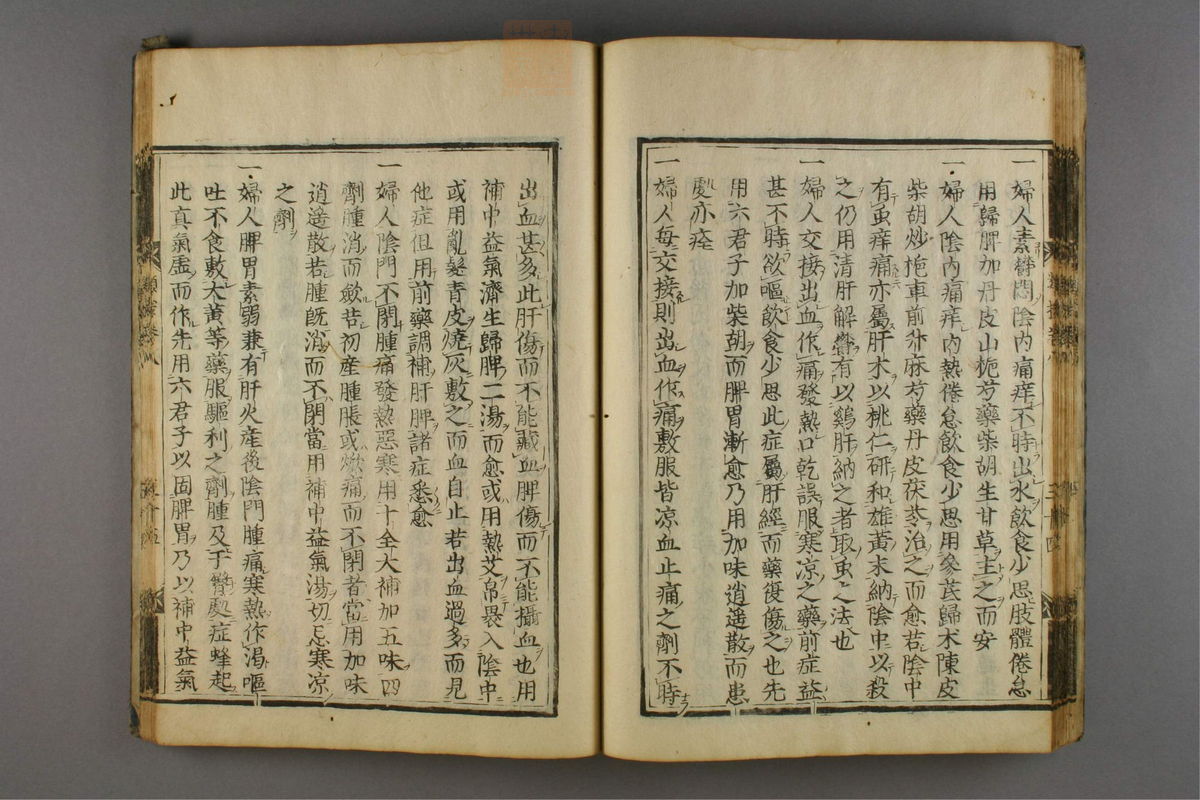 一婦人素欝悶陰内痛痒不時出水飲食少思肢體倦怠
用歸脾加丹皮山梔芍藥柴胡生甘草主之而安
一婦人陰内痛痒内熱倦怠飲食少思用參芪歸朮陳皮
柴胡炒梔車前升麻芍藥丹皮茯苓治之而愈若陰中
有虫痒痛亦屬肝木以桃仁研和雄黄末納陰中以殺
之仍用清肝解欝有以鷄肝納之者取虫之法也
一婦人交接出血作痛發熱口乾誤服寒凉之藥前症益
甚不時欲嘔飲食少思此症屬肝經而藥復傷之也先
用六君子加柴胡而脾胃漸愈乃用加味逍遥散而患
處亦痊
一婦人毎交接則出血作痛敷服皆凉血止痛之劑不時
出血甚多此肝傷而不能藏血脾傷而不能攝血也用
補中益氣濟生歸脾二湯而愈或用熱艾帛畏入陰中
或用亂髮青皮燒灰敷之而血自止若出血過多而見
他症但用前藥調補肝脾諸症悉愈
一婦人陰門不閉腫痛發熱惡寒用十全大補加五味四
劑腫消而歛若初産腫脹或焮痛而不閉者當用加味
逍遥散若腫既消而不閉當用補中益氣湯切忌寒凉
之劑
一婦人脾胃素弱兼有肝火産後陰門腫痛寒熱作渴嘔
吐不食敷大黄等藥服驅利之劑腫及于臀處症蜂起
此真氣虚而作先用六君子以固脾胃乃以補中益氣